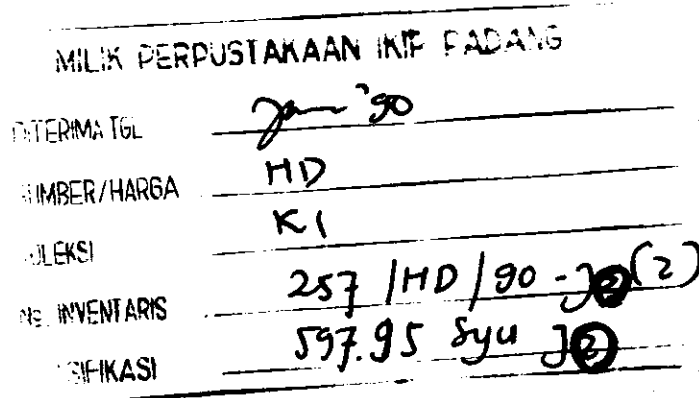 MILIK PERPUSTAKAAN IKIP PADANG
DITERIMA TGL Jan '90
SUMBER/HARGA HD
KOLEKSI KI
NO. INVENTARIS 257/HD/90-J2(2)
KLASIFIKASI 597.95 Syu J2